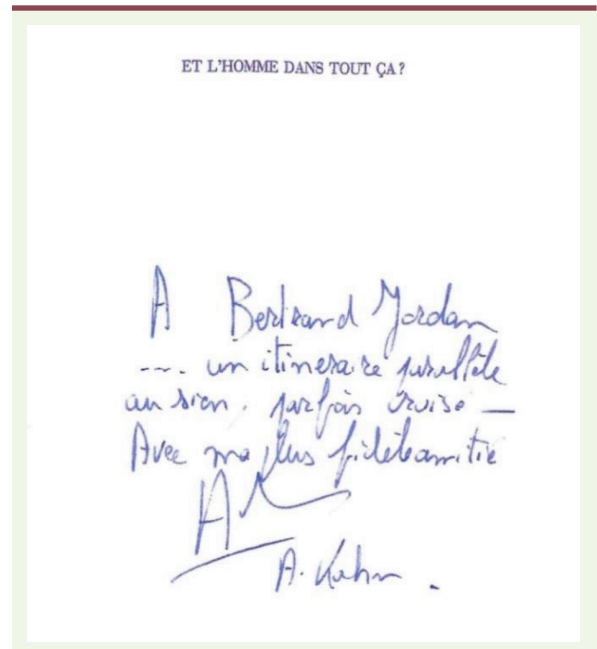 ET L'HOMME DANS TOUT ÇA?
A Bertrand Jordan
---. un itineraire parallèle
au sien, parfois croisé —
Avec ma plus fidèle amitié
AK
A. Kahn.